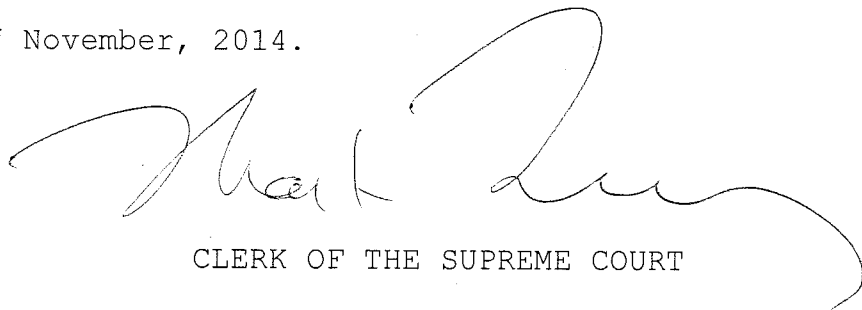 November, 2014.
Mark
CLERK OF THE SUPREME COURT